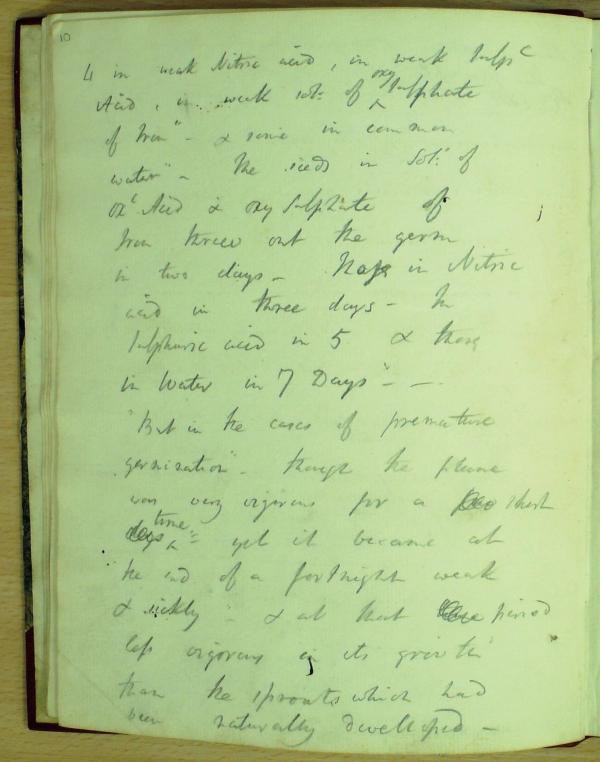 10
4 in weak Nitric acid, in weak Sulpc
Acid, in weak sol: of oxy Sulphate
of Iron" - & some in common
water" - The seeds in Sol: of
oxc Acid & oxy Sulphate of
Iron threw out the germ
in two days - Those in Nitric
acid in three days - In
Sulphuric acid in 5 & those
in Water in 7 Days" - -
"But in the cases of premature
germination" - though the plume
was very vigorous for a short
time - yet it became at
the end of a fortnight weak
& sickly" - & at that period
less vigorous in its growth
than the sprouts which had
been naturally developed -